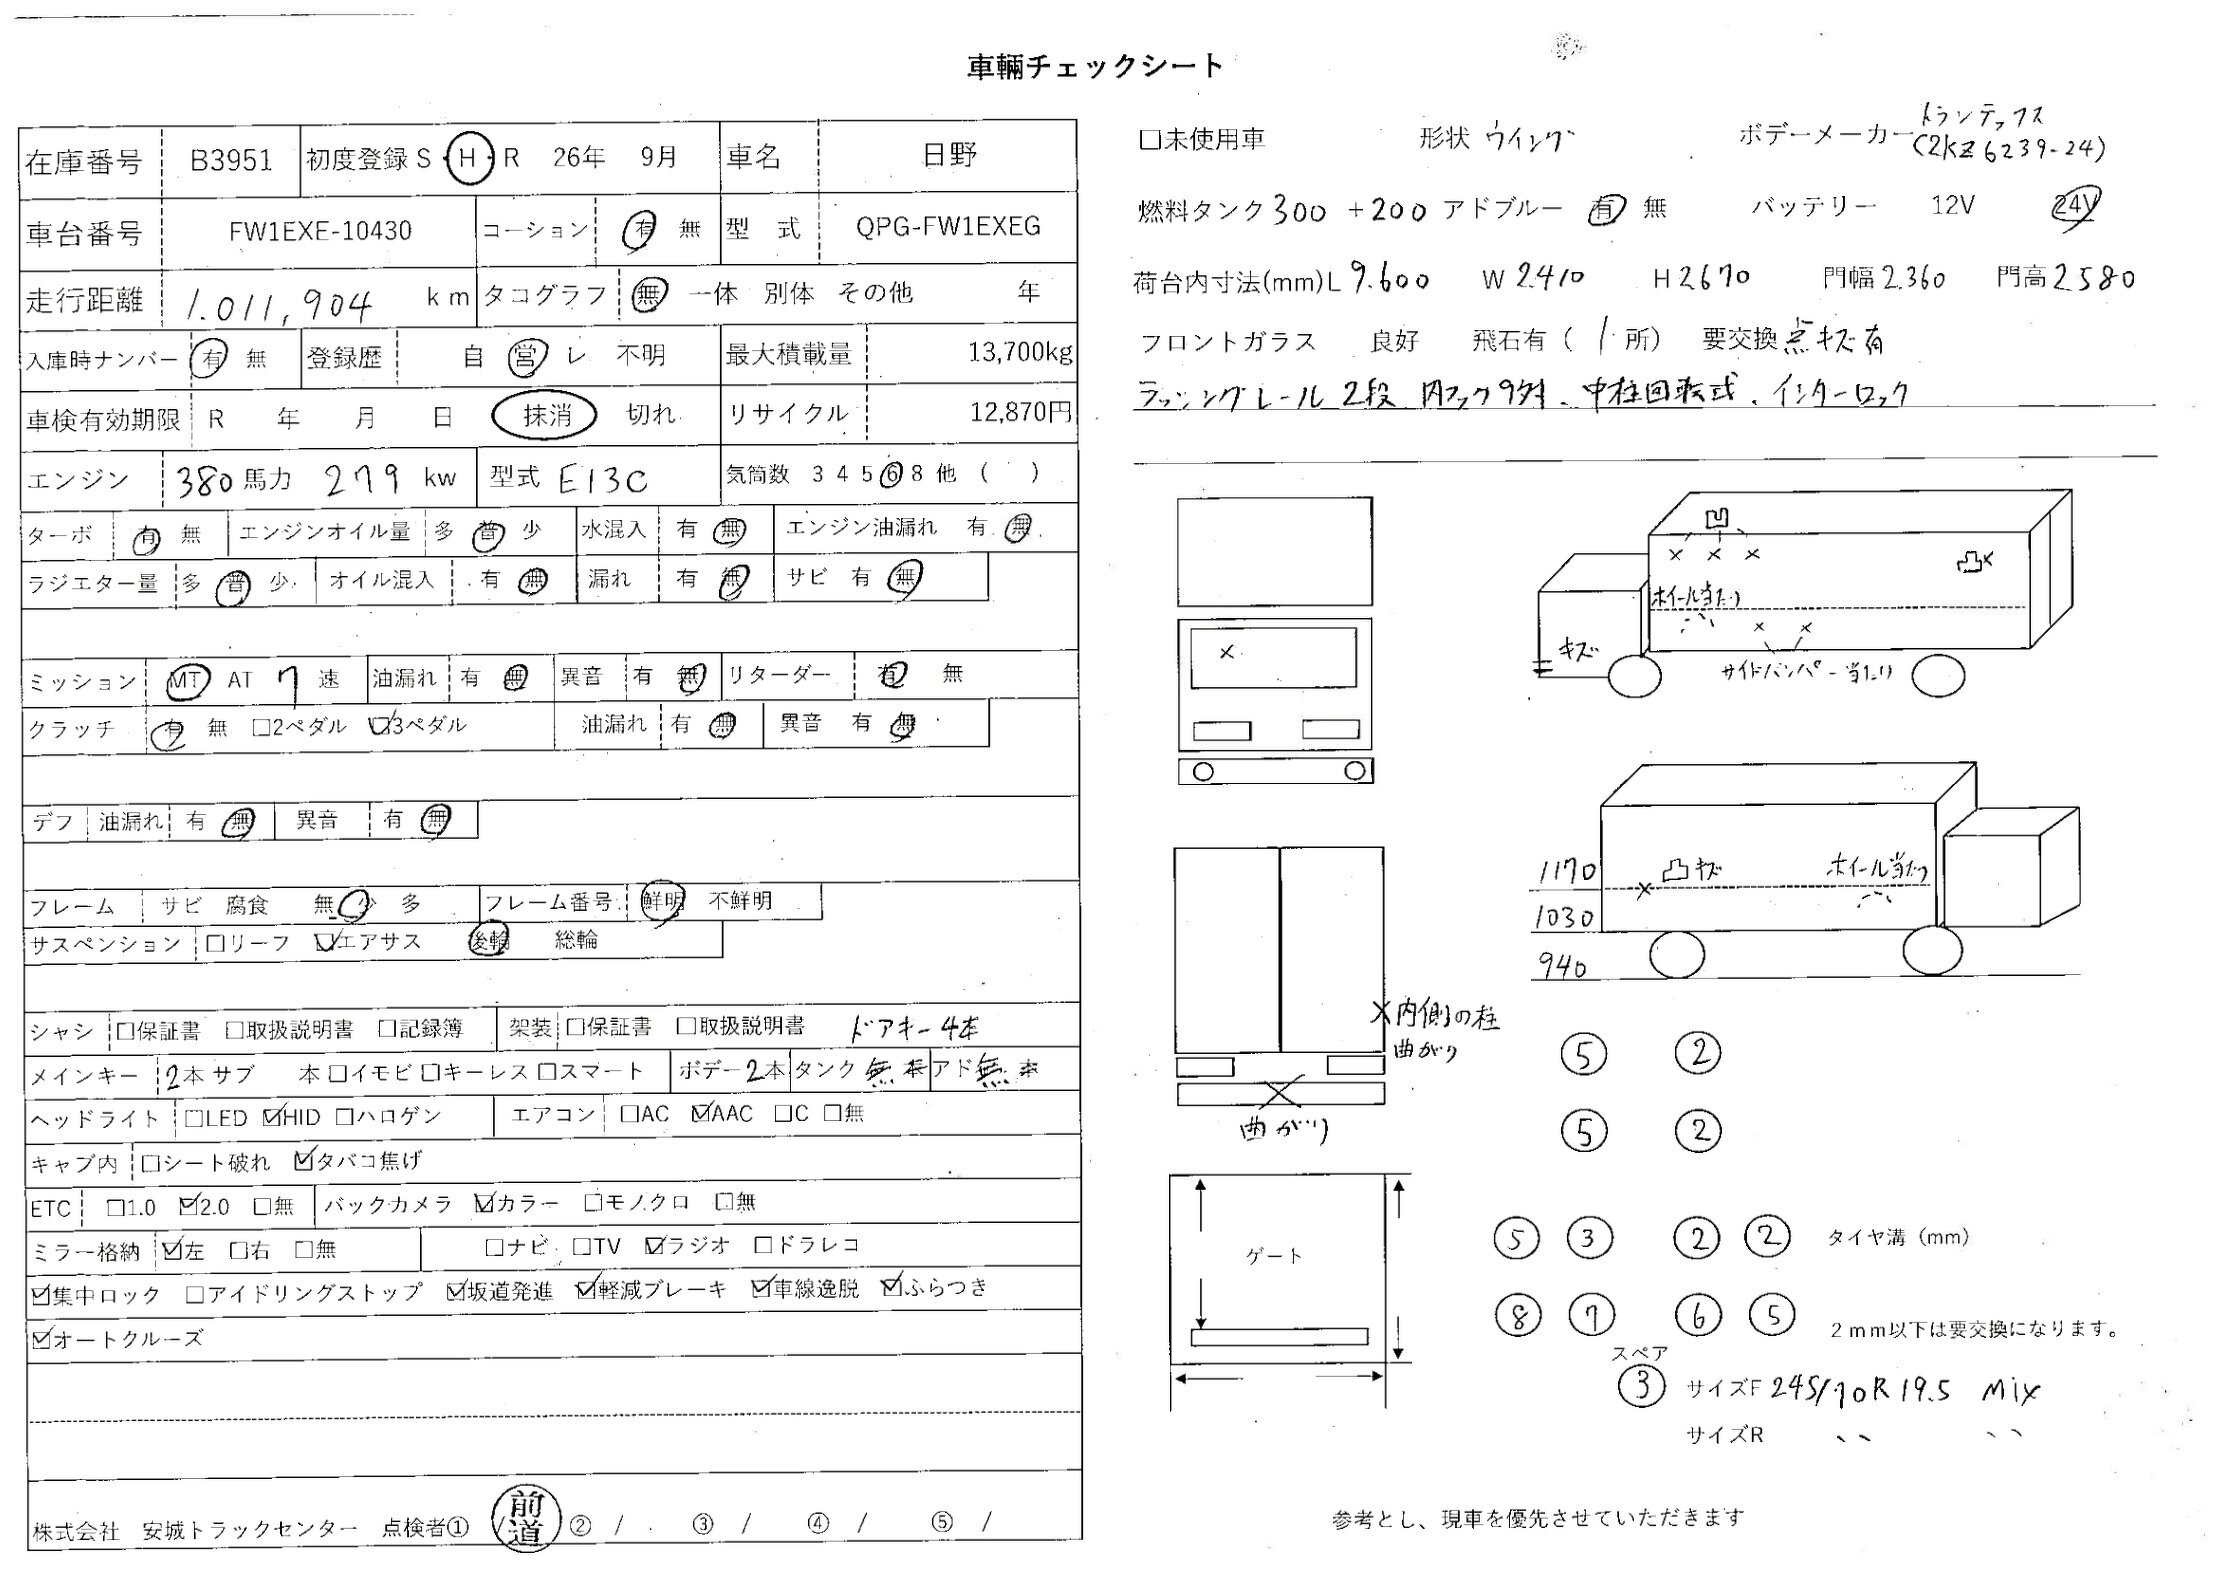 車輌チェックシート
在庫番号 B3951 初度登録 S・H・R 26年 9月 車名 日野
車台番号 FW1EXE-10430 コーション 有 無 型 式 QPG-FW1EXEG
走行距離 1.011,904 km タコグラフ 無 一体 別体 その他 年
入庫時ナンバー 有 無 登録歴 自 営 レ 不明 最大積載量 13,700kg
車検有効期限 R 年 月 日 抹消 切れ リサイクル 12,870円
エンジン 380馬力 279 kw 型式 E13C 気筒数 3 4 5 6 8 他 ( )
ターボ 有 無 エンジンオイル量 多 普 少 水混入 有 無 エンジン油漏れ 有 無
ラジエター量 多 普 少 オイル混入 有 無 漏れ 有 無 サビ 有 無
ミッション MT AT 7 速 油漏れ 有 無 異音 有 無 リターダー 有 無
クラッチ 有 無 □2ペダル ☑3ペダル 油漏れ 有 無 異音 有 無
デフ 油漏れ 有 無 異音 有 無
フレーム サビ 腐食 無 少 多 フレーム番号 鮮明 不鮮明
サスペンション □リーフ ☑エアサス 後輪 総輪
シャシ □保証書 □取扱説明書 □記録簿 架装 □保証書 □取扱説明書 ドアキー4本
メインキー 2本 サブ 本 □イモビ □キーレス □スマート ボデー2本 タンク 無 本 アド 無 本
ヘッドライト □LED ☑HID □ハロゲン エアコン □AC ☑AAC □C □無
キャブ内 □シート破れ ☑タバコ焦げ
ETC □1.0 ☑2.0 □無 バックカメラ ☑カラー □モノクロ □無
ミラー格納 ☑左 □右 □無 □ナビ □TV ☑ラジオ □ドラレコ
☑集中ロック □アイドリングストップ ☑坂道発進 ☑軽減ブレーキ ☑車線逸脱 ☑ふらつき
☑オートクルーズ
株式会社 安城トラックセンター 点検者① / 前道 ② / ③ / ④ / ⑤ /
□未使用車 形状 ウイング ボデーメーカー トランテックス
(2KZ6239-24)
燃料タンク 300 +200 アドブルー 有 無 バッテリー 12V 24V
荷台内寸法(mm)L 9.600 W 2.410 H 2670 門幅 2.360 門高 2580
フロントガラス 良好 飛石有 ( 1 所) 要交換 点キズ有
ラッシングレール 2段 内フック9対. 中柱回転式. インターロック
凹
× × × 凸×
ホイール当たり
× ×
キズ
サイドバンパー当たり
×
1170 凸 キズ ホイール当たり
×
1030
940
×内側の柱
曲がり
×
曲がり
ゲート
⑤ ②
⑤ ②
⑤ ③ ② ② タイヤ溝（mm）
⑧ ⑦ ⑥ ⑤ 2mm以下は要交換になります。
スペア
③ サイズF 245/70R19.5 Mix
サイズR 〃 〃
参考とし、現車を優先させていただきます